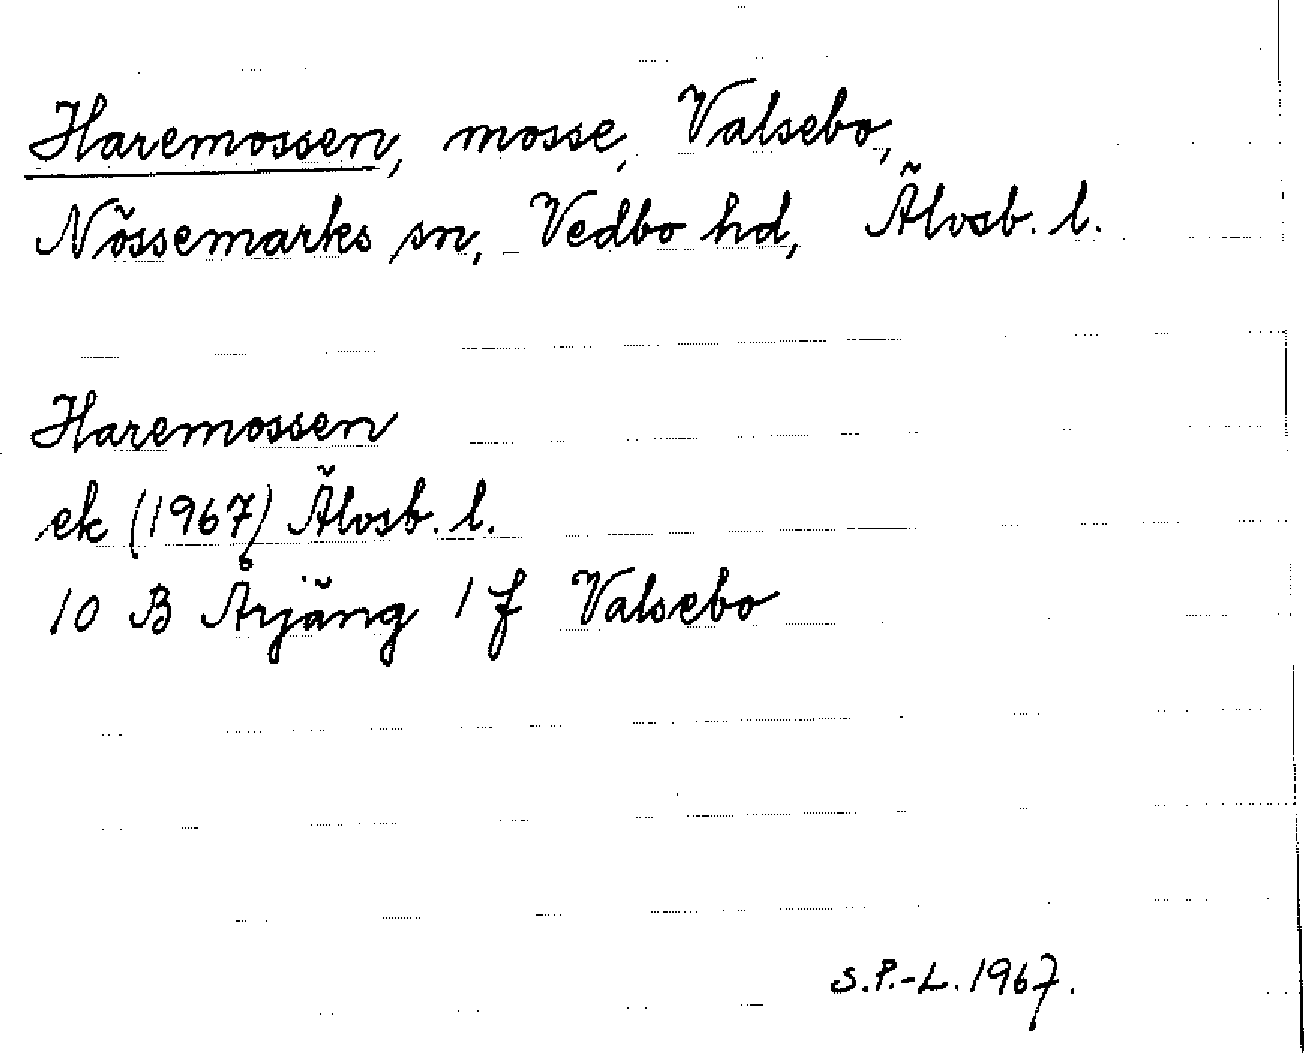 Haremossen, mosse, Valsebo,
Nössemarks sn, Vedbo hd, Älvsb. l.
Haremossen
ek (1967) Älvsb. l.
10 B Årjäng 1 f Valsebo
S.P.-L. 1967.